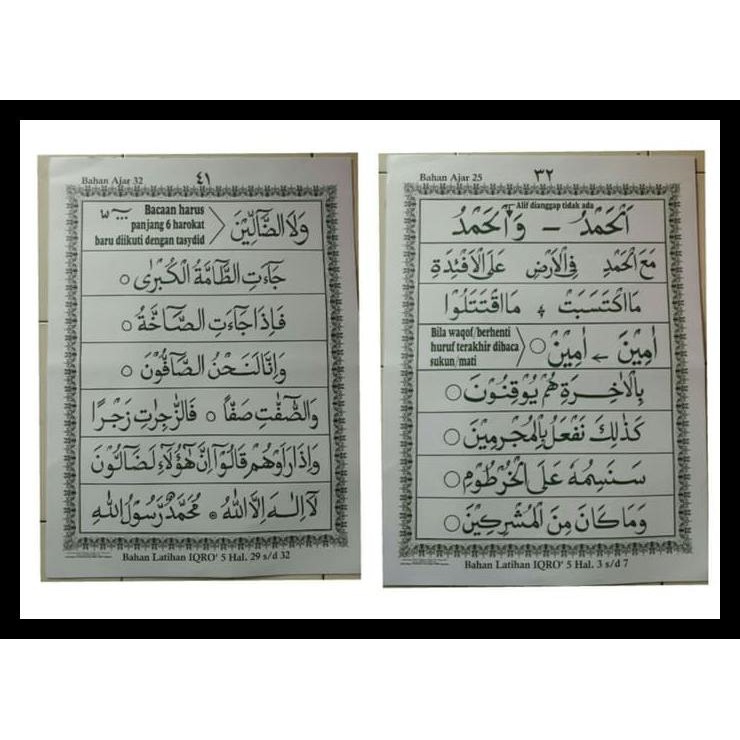 Bahan Ajar 32
٤١
وَلَا الضَّآلِّيْنَ
Bacaan harus
panjang 6 harokat
baru diikuti dengan tasydid
جَآءَتِ الطَّآمَّةُ الْكُبْرٰى ○
فَاِذَا جَآءَتِ الصَّآخَّةُ ○
وَاِنَّا لَنَحْنُ الصَّآفُّوْنَ ○
وَالصّٰٓفّٰتِ صَفًّا ○ فَالزّٰجِرٰتِ زَجْرًا
وَاِذَا رَاَوْهُمْ قَالُوْٓا اِنَّ هٰٓؤُلَآءِ لَضَآلُّوْنَ
لَآ اِلٰهَ اِلَّا اللّٰهُ ۞ مُحَمَّدٌ رَّسُوْلُ اللّٰهِ
Bahan Latihan IQRO' 5 Hal. 29 s/d 32
Bahan Ajar 25
٣٢
Alif dianggap tidak ada
اَلْحَمْدُ – وَالْحَمْدُ
مَعَ الْحَمْدِ فِى الْاَرْضِ عَلَى الْاَفْئِدَةِ
مَا اكْتَسَبَتْ مَا اقْتَتَلُوْا
اٰمِيْنَ ← اٰمِيْنْ ○
Bila waqof/berhenti
huruf terakhir dibaca
sukun/mati
بِالْاٰخِرَةِ هُمْ يُوْقِنُوْنَ ○
كَذٰلِكَ نَفْعَلُ بِالْمُجْرِمِيْنَ ○
سَنَسِمُهٗ عَلَى الْخُرْطُوْمِ ○
وَمَا كَانَ مِنَ الْمُشْرِكِيْنَ ○
Bahan Latihan IQRO' 5 Hal. 3 s/d 7